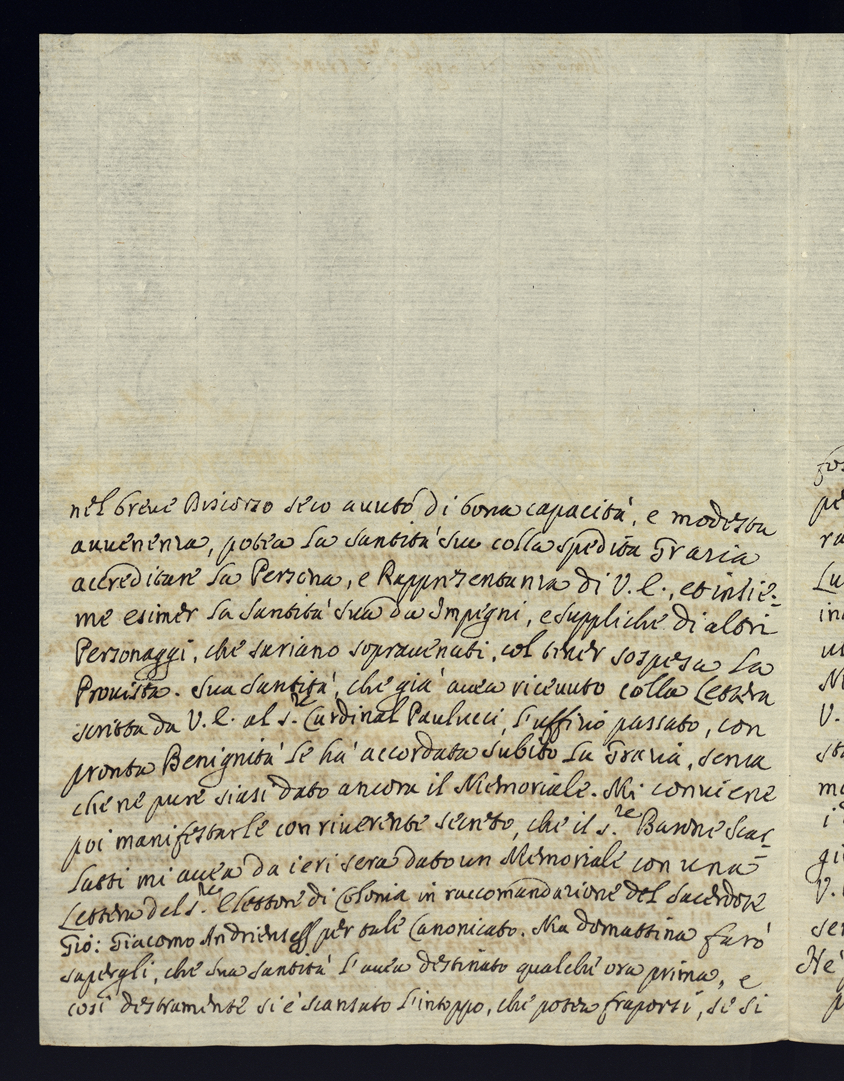 nel breve Discorso seco avuto di bona capacità, e modesta
avvenenza, potea la Santità Sua colla spedita Grazia
accreditare la Persona, e Rappresentanza di V. E., et insie=
me esimer la Santità Sua da Impegni, e suppliche di altri
Personaggi, che sariano sopravenuti, col tener sospesa la
Provista. Sua Santità, che già avea ricevuto colla Lettera
scritta da V. E. al S.re Cardinal Paulucci, l'uffizio passato, con
pronta Benignità Le hà accordata subito la Grazia, senza
che ne pure siasi dato ancora il Memoriale. Mi conviene
poi manifestarle con riverente secreto, che il S.re Barone Scar=
latti mi avea da ieri sera dato un Memoriale con una
Lettera del S.re Elettore di Colonia in raccomandazione del Sacerdote
Giò: Giacomo per tale Canonicato. Ma domattina farò
sapergli, che Sua Santità l'avea destinato qualche ora prima, e
così destramente si è scansato l'intoppo, che potea fraporsi, se si
fos
pe
ra
Lu
in
V.
st
mo
gi
V.
ser
Nè
p